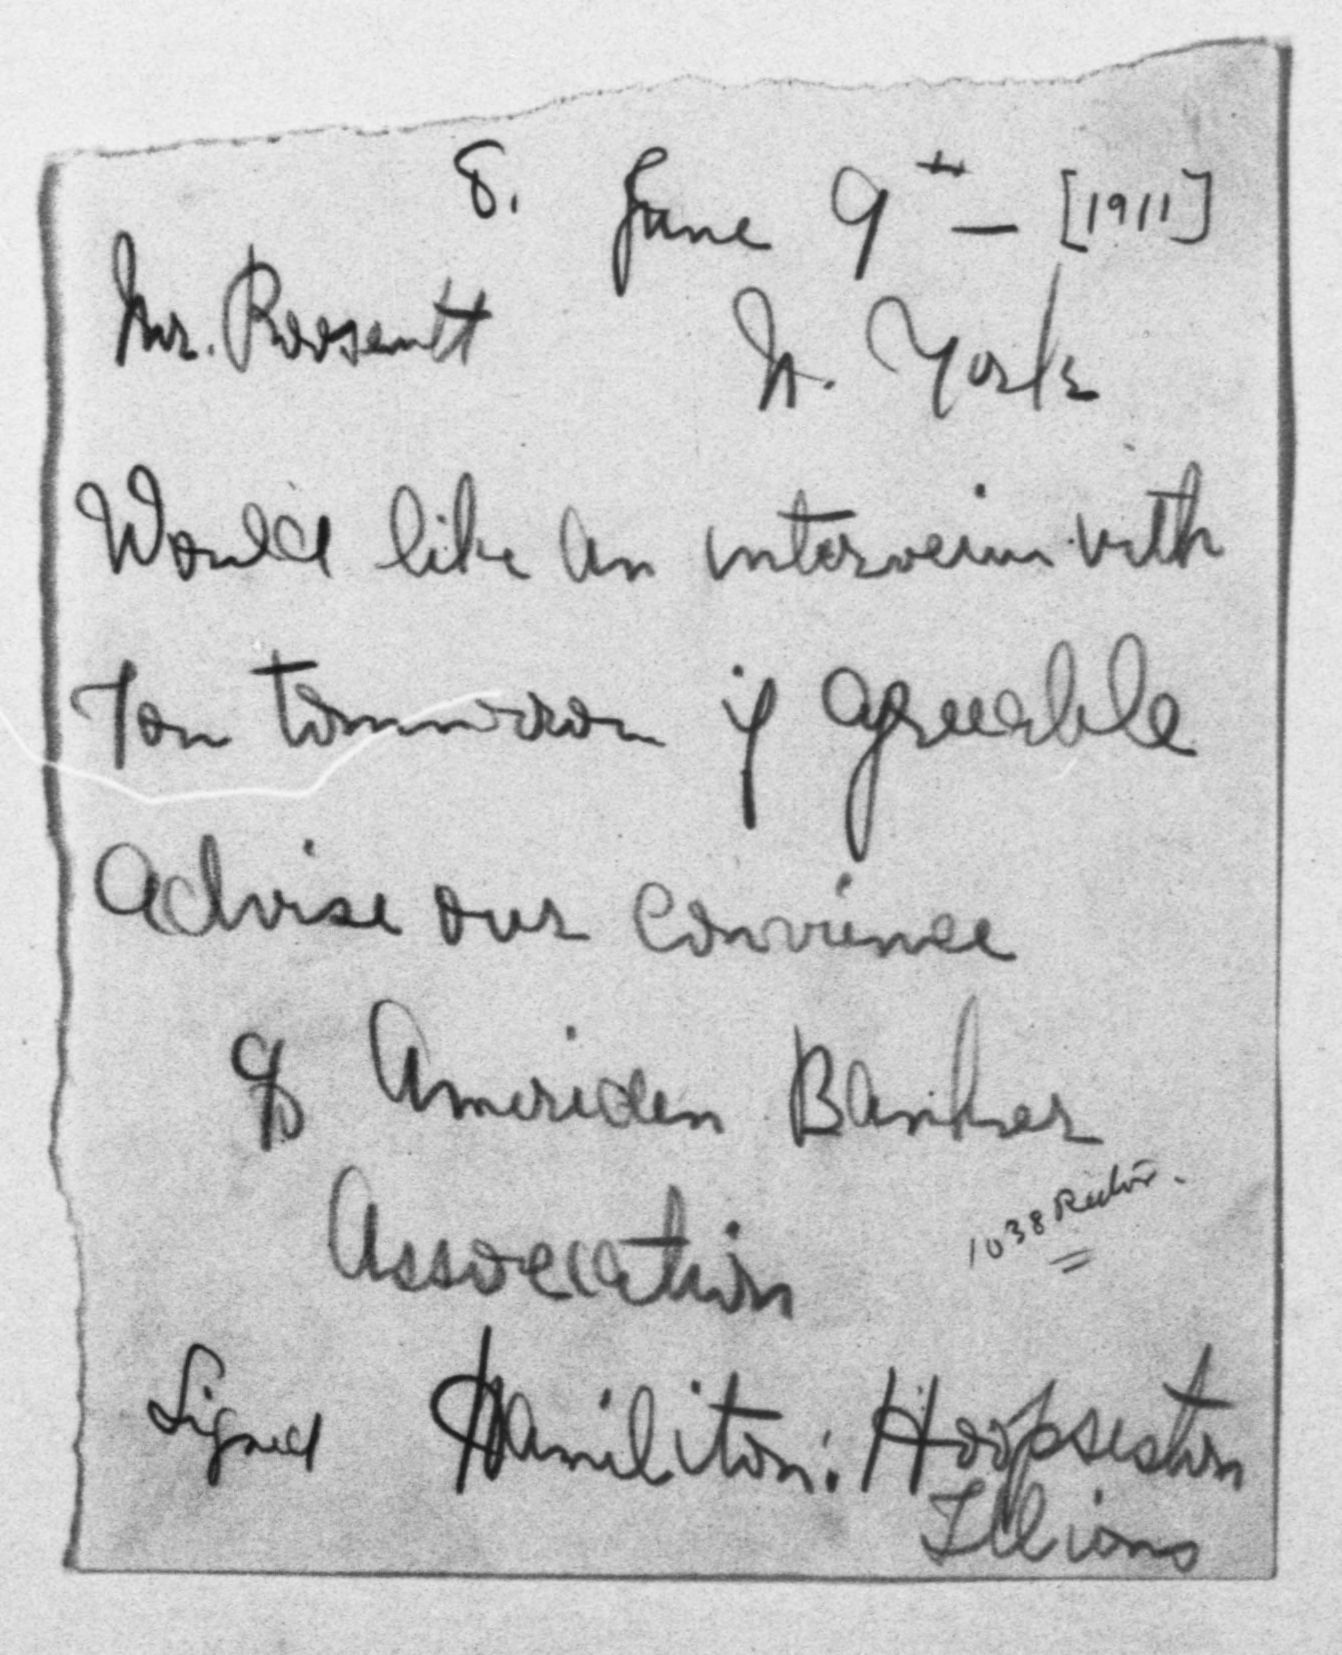 8. June 9th — [1911]
Mr. Roosevelt
N. York
Would like an interveiw with
You tommorrow if agreeable
Advise our convience
of American Banker
Association
1038 Rector.
Signed Hamiliton: Hoopseston
Illions